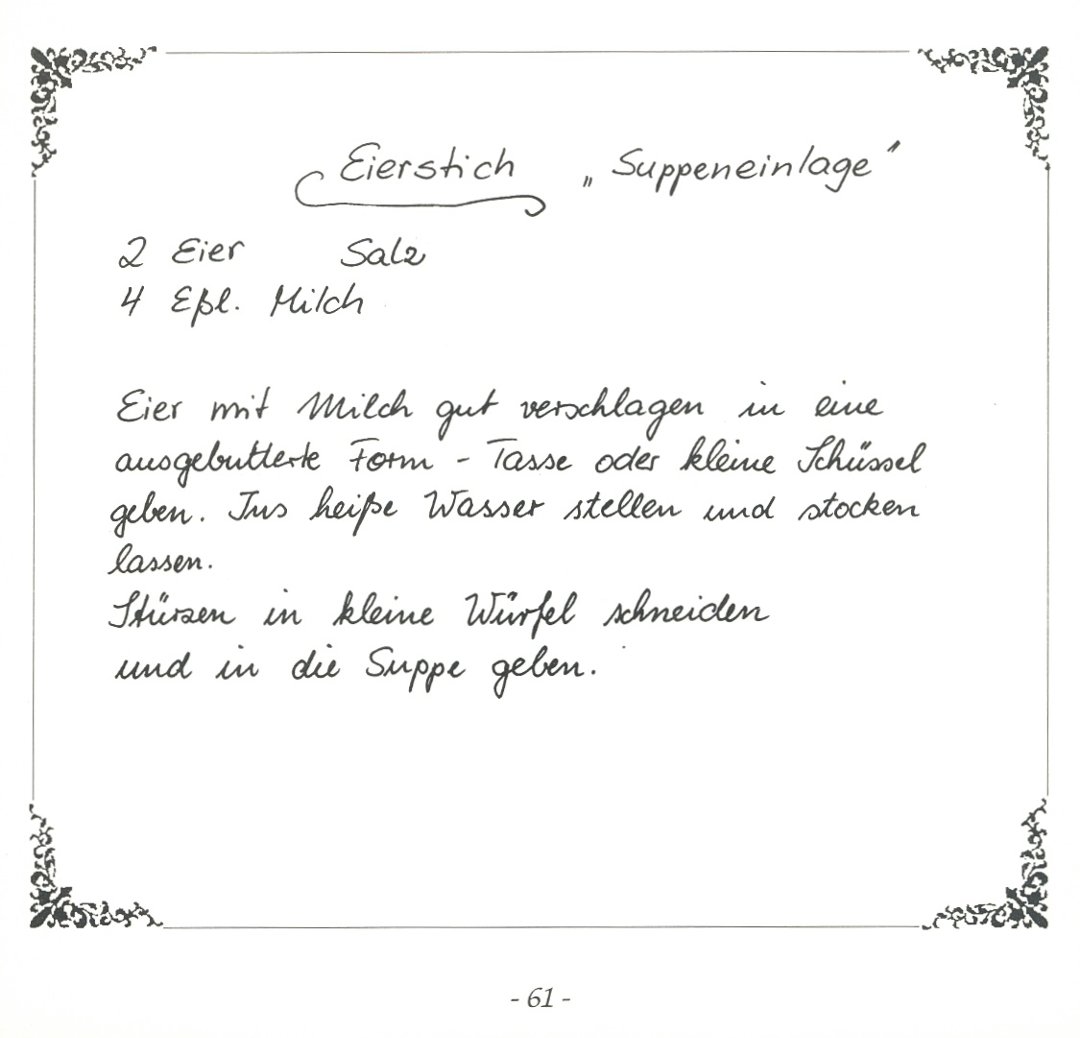 Eierstich „Suppeneinlage“
2 Eier Salz
4 Eßl. Milch
Eier mit Milch gut verschlagen in eine
ausgebutterte Form - Tasse oder kleine Schüssel
geben. Ins heiße Wasser stellen und stocken
lassen.
Stürzen in kleine Würfel schneiden
und in die Suppe geben.
- 61 -